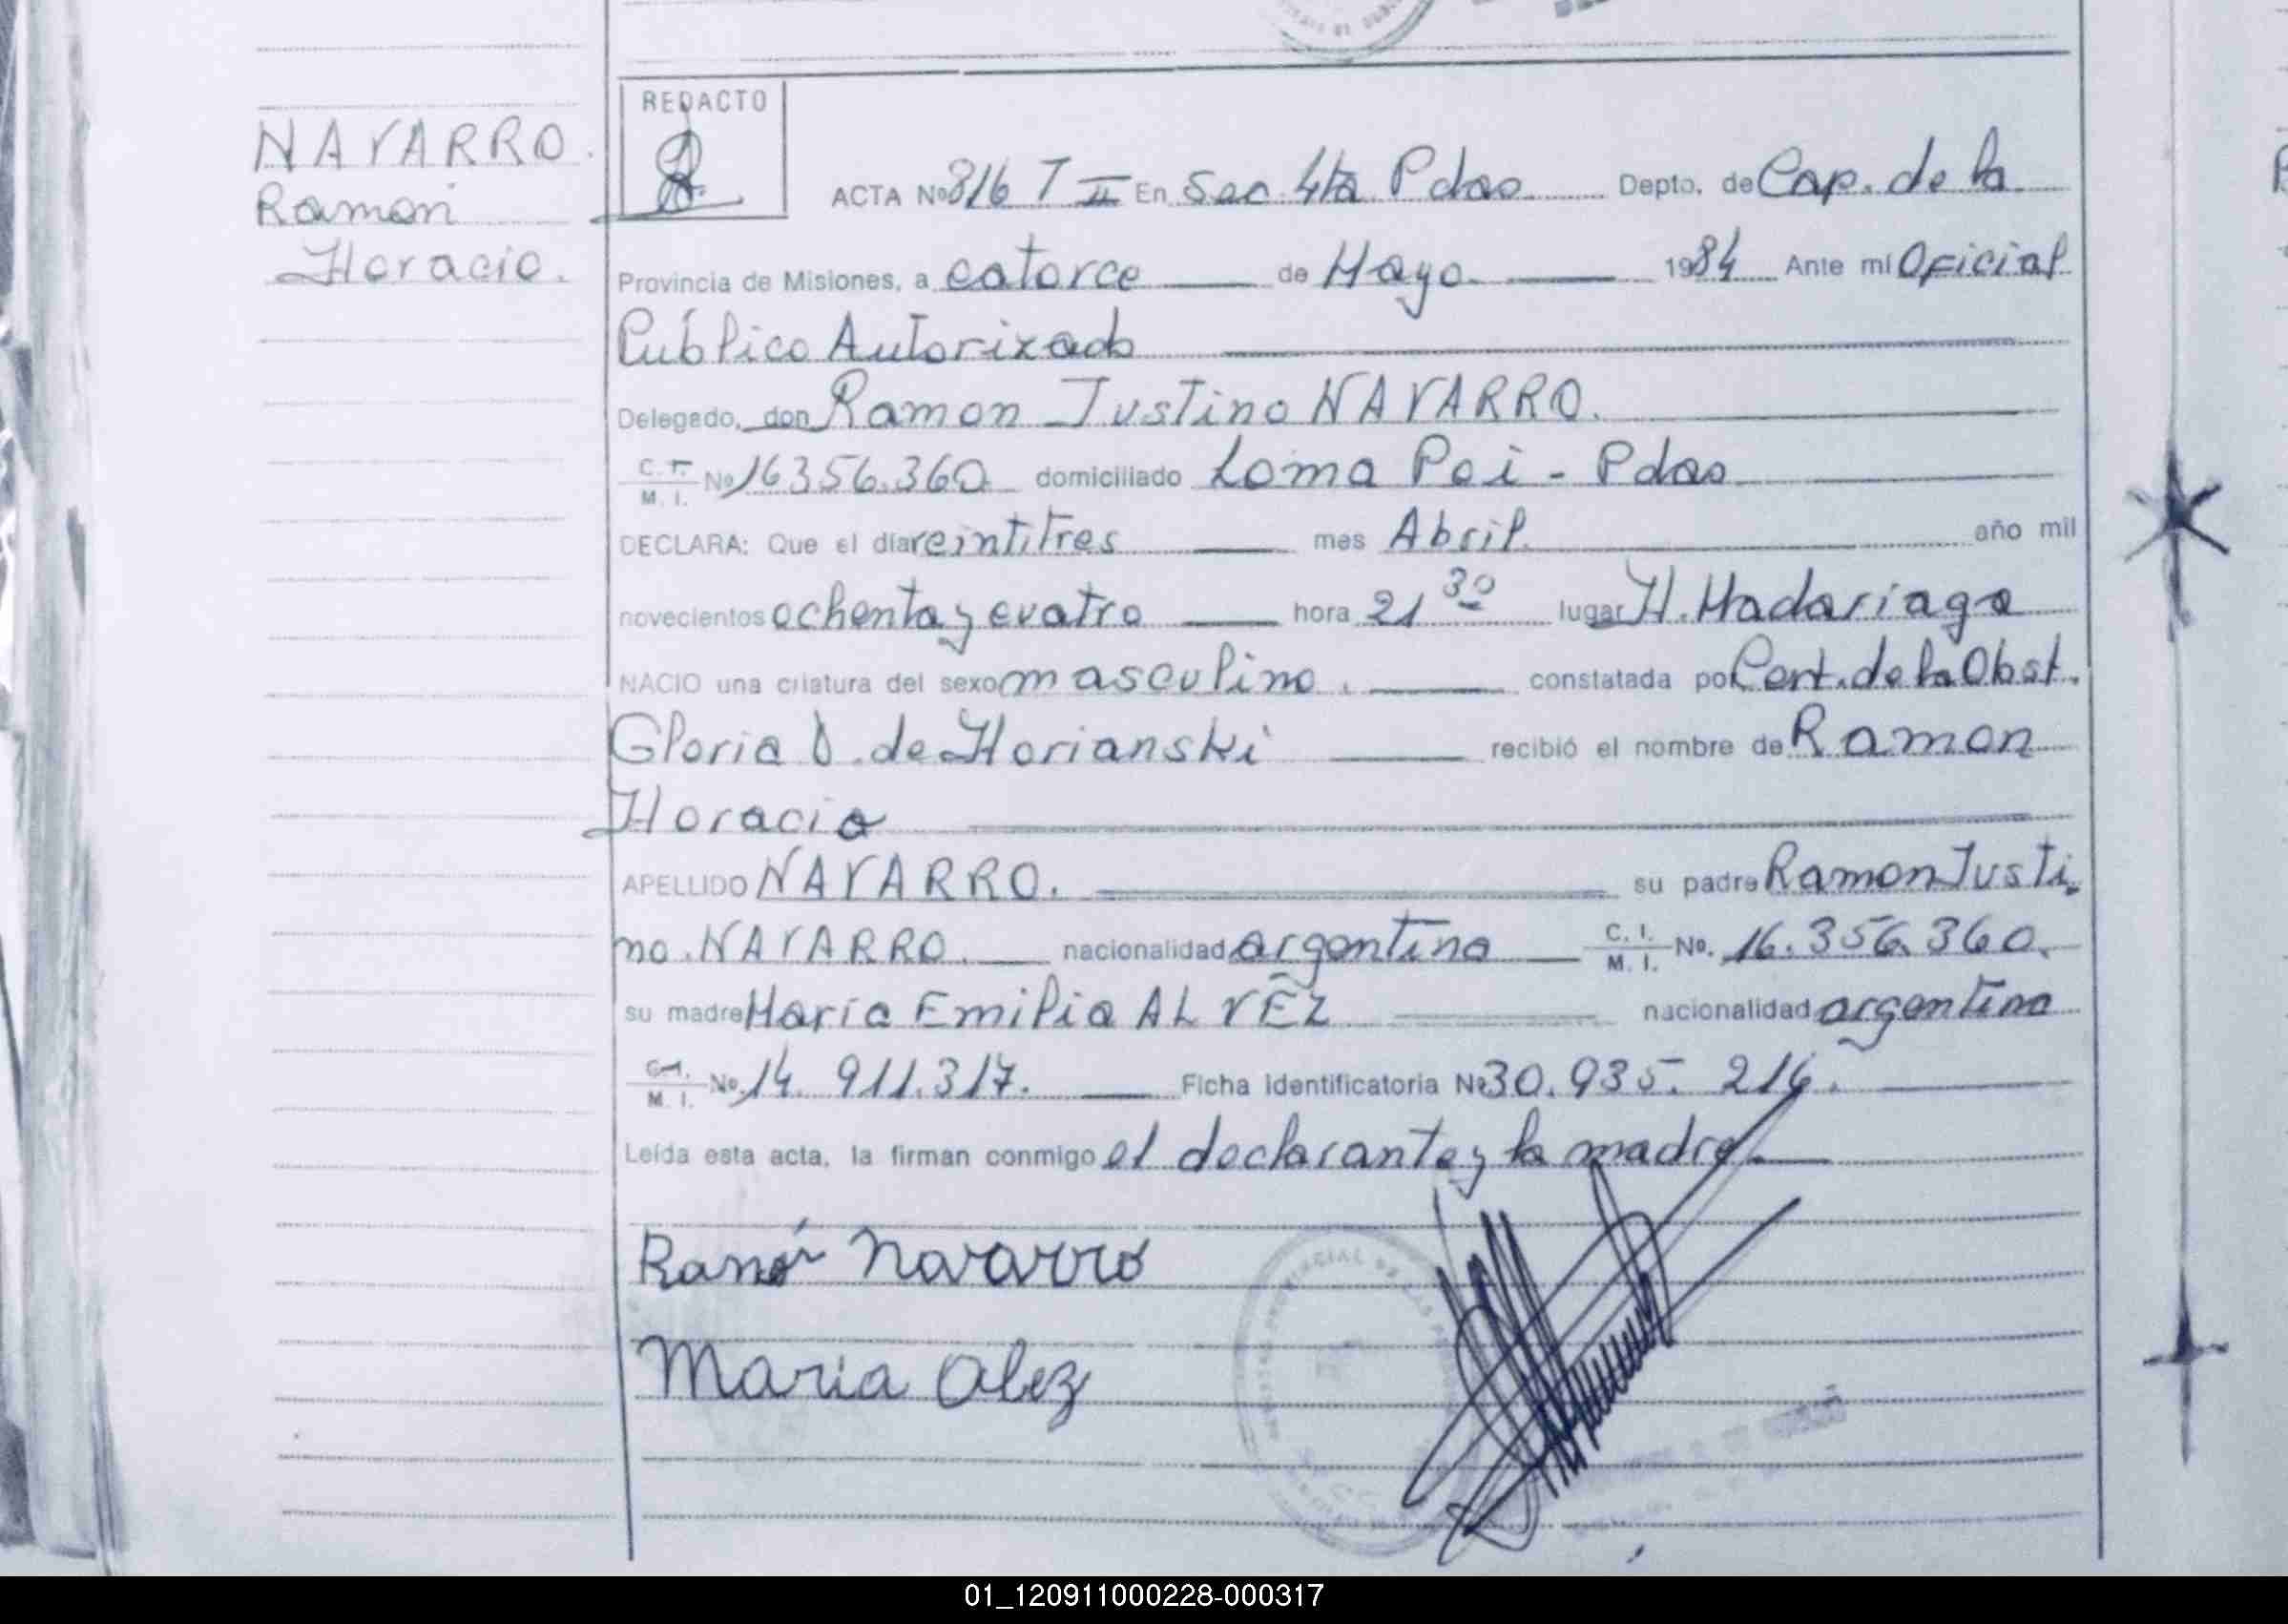 NAVARRO.
Ramon
Horacio.
REDACTO
ACTA Nº 816 T II En Sec. 4ta Pdas Depto. de Cap. de la
Provincia de Misiones, a catorce de Mayo 1984 Ante mí Oficial
Público Autorizado
Delegado, don Ramon Justino NAVARRO.
C.I. M. I. Nº 16.356.360 domiciliado Loma Poi - Pdas
DECLARA: Que el día veintitres mes Abril año mil
novecientos ochenta y cuatro hora 21 30 lugar H. Madariaga
NACIO una criatura del sexo masculino. constatada por Cert. de la Obst.
Gloria D. de Horianski recibió el nombre de Ramon
Horacio
APELLIDO NAVARRO. su padre Ramon Justi
no. NAVARRO. nacionalidad argentina C. I. M. I. Nº. 16.356.360.
su madre María Emilia ALVEZ nacionalidad argentina
C.I. M. I. Nº. 14.911.317. Ficha identificatoria Nº 30.935.216.
Leída esta acta, la firman conmigo el declarante y la madre.
Ramón Navarro
Maria Alez
01_120911000228-000317